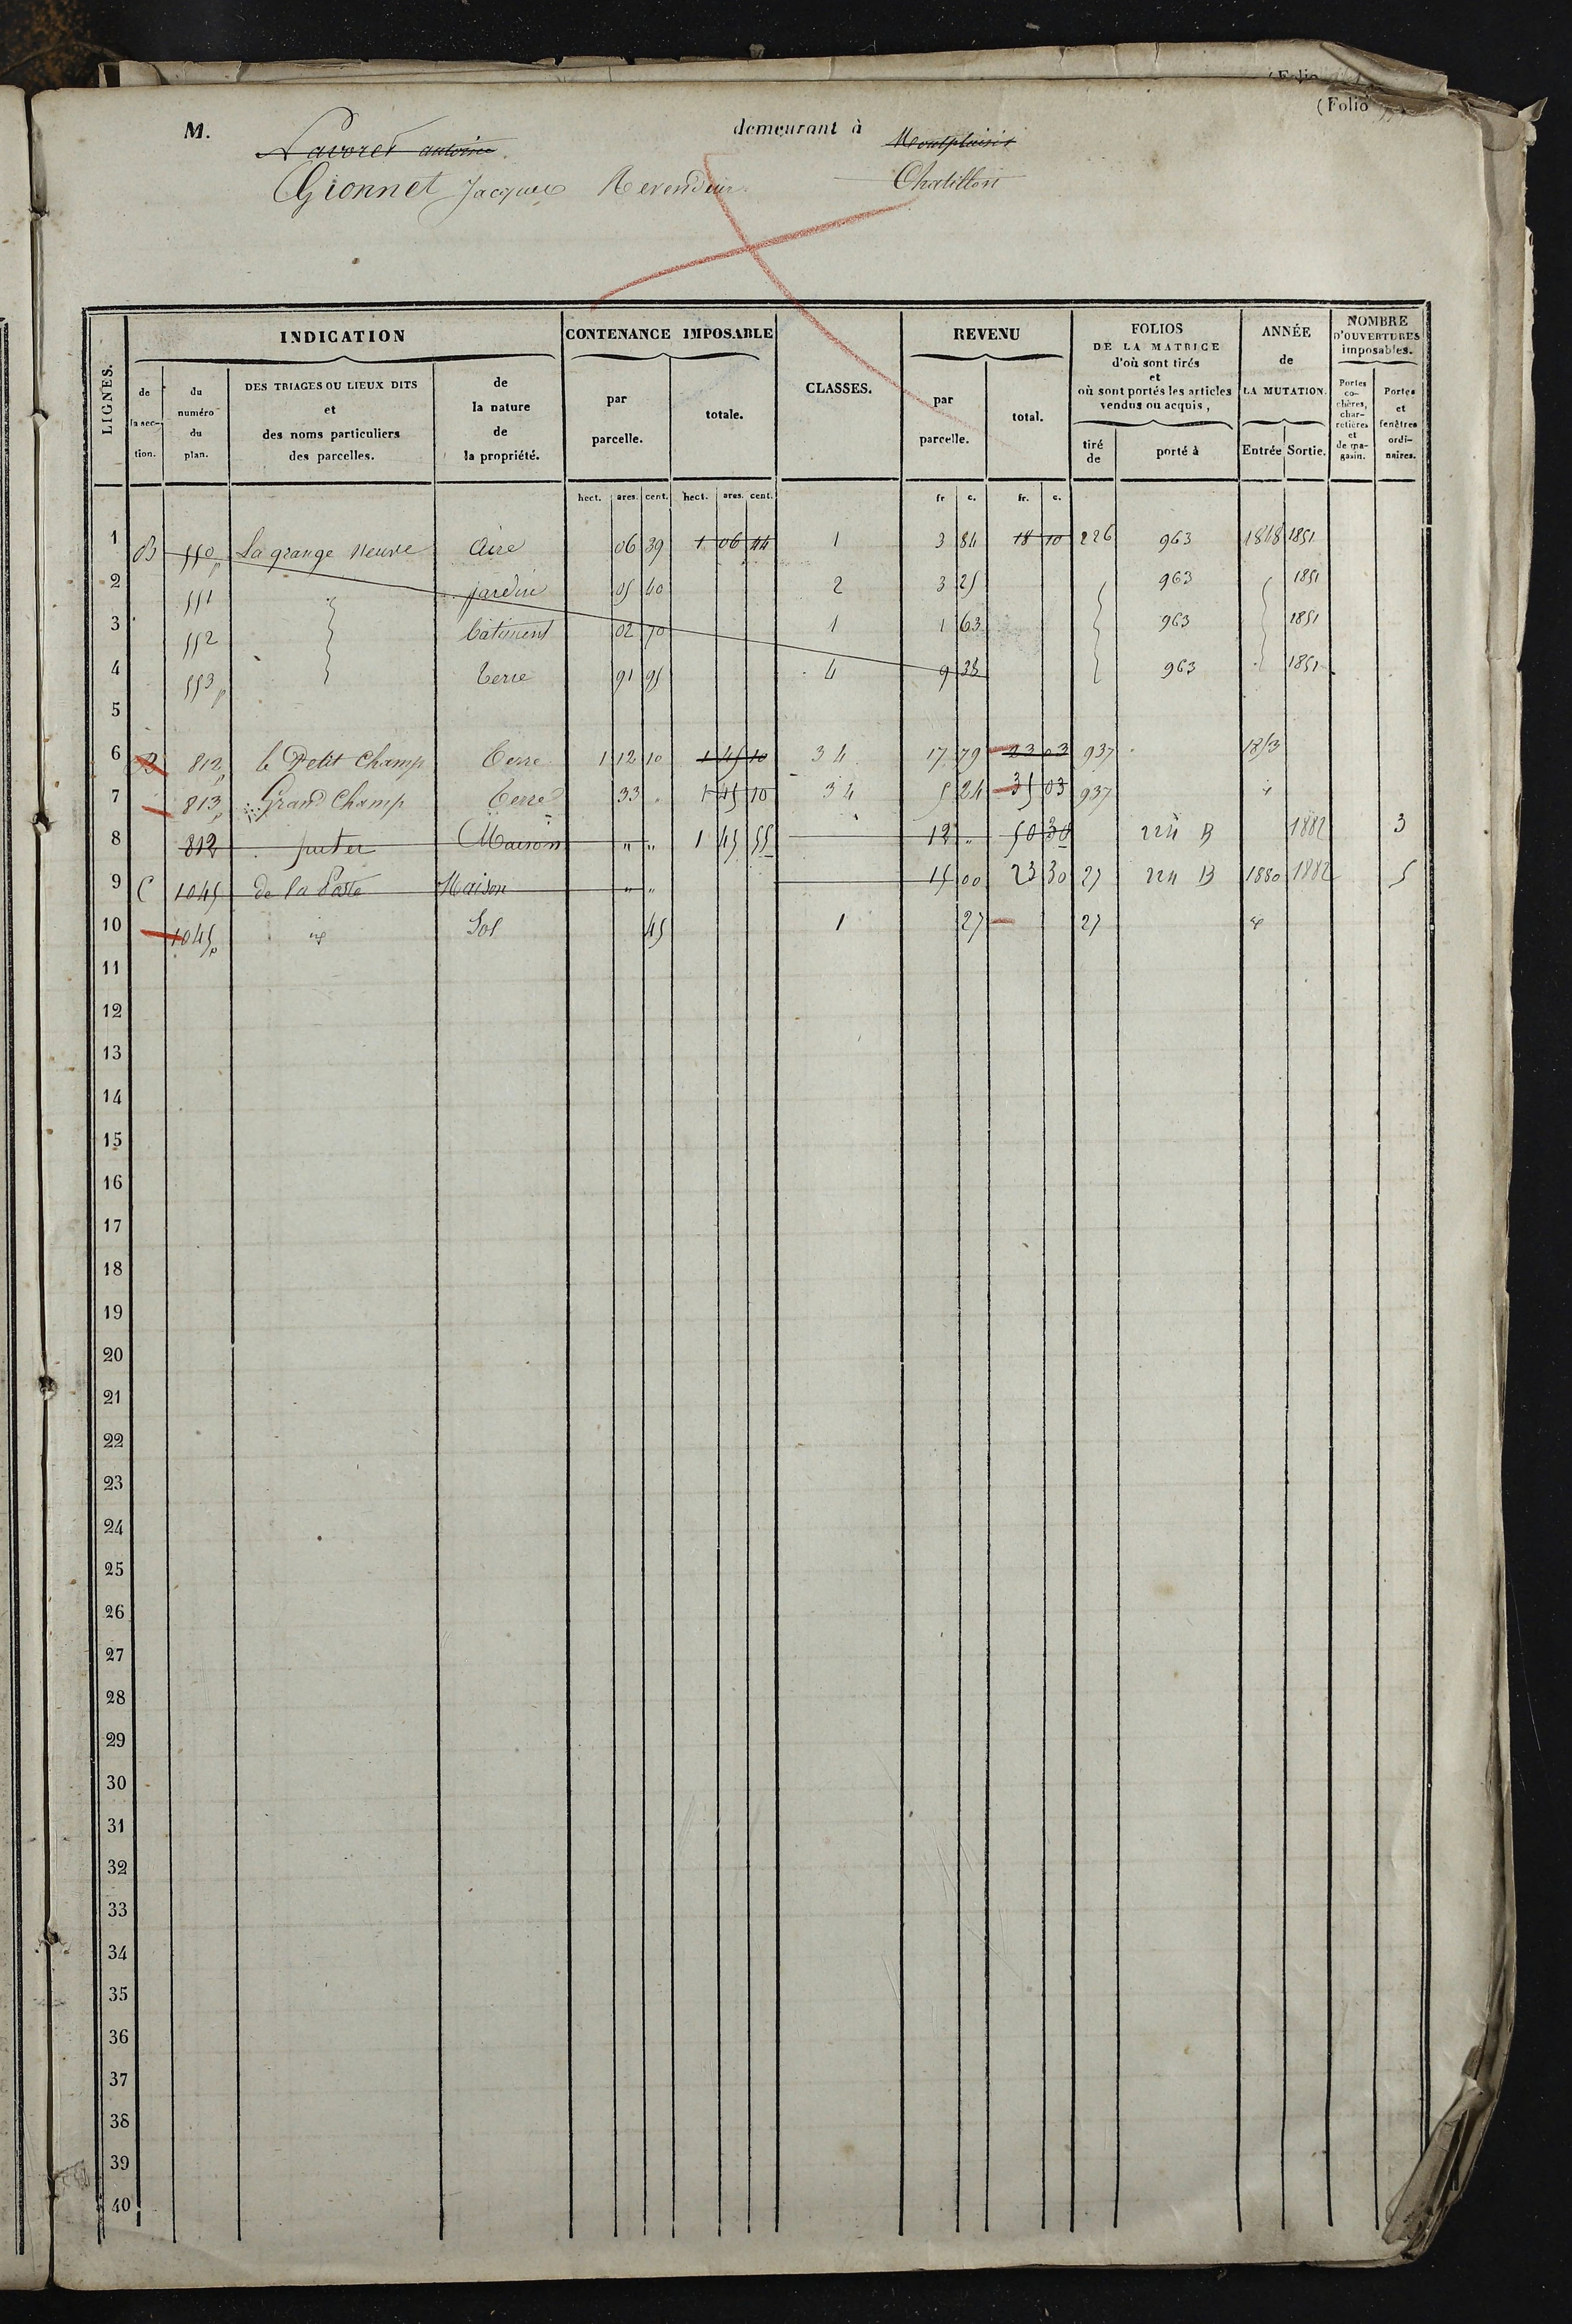 (Folio
(Folio
M. Lavoret antoine demeurant à Montplaisir
Gionnet Jacques Revendeur Chatillon
LIGNES.
INDICATION
CONTENANCE IMPOSABLE
CLASSES.
REVENU
FOLIOS
DE LA MATRICE
d'où sont tirés
et
où sont portés les articles
vendus ou acquis,
ANNÉE
de
LA MUTATION.
NOMBRE
D'OUVERTURES
imposables.
de
la sec-
tion.
du
numéro
du
plan.
DES TRIAGES OU LIEUX DITS
et
des noms particuliers
des parcelles.
de
la nature
de
la propriété.
par
parcelle.
totale.
par
parcelle.
total.
tiré
de
porté à
Entrée Sortie.
Portes
co-
chères,
char-
retières
et
de ma-
gasin.
Portes
et
fenêtres
ordi-
naires.
hect. ares. cent. hect. ares. cent. fr c. fr. c.
1 B 550p La grange Neuve Aire 06 39 1 06 44 1 3 84 18 10 226 963 1848 1851
2 551 jardin 05 40 2 3 25 963 1851
3 552 batiment 02 70 1 1 63 963 1851
4 553p Terre 91 95 4 9 38 963 1851
5
6 B 812p le Petit Champ Terre 1 12 10 1 45 10 3 4 17 79 23 03 937 1853
7 813p Grand Champ Terre 33 1 45 10 3 4 5 24 35 03 937 id
8 812 Maison " " 1 45 55 12 " 50 30 224 B 1882 3
9 C 1045 de la Poste Maison " " 15 00 23 30 27 224 B 1880 1882 5
10 1045p id Sol 45 1 27 27 id
11
12
13
14
15
16
17
18
19
20
21
22
23
24
25
26
27
28
29
30
31
32
33
34
35
36
37
38
39
40